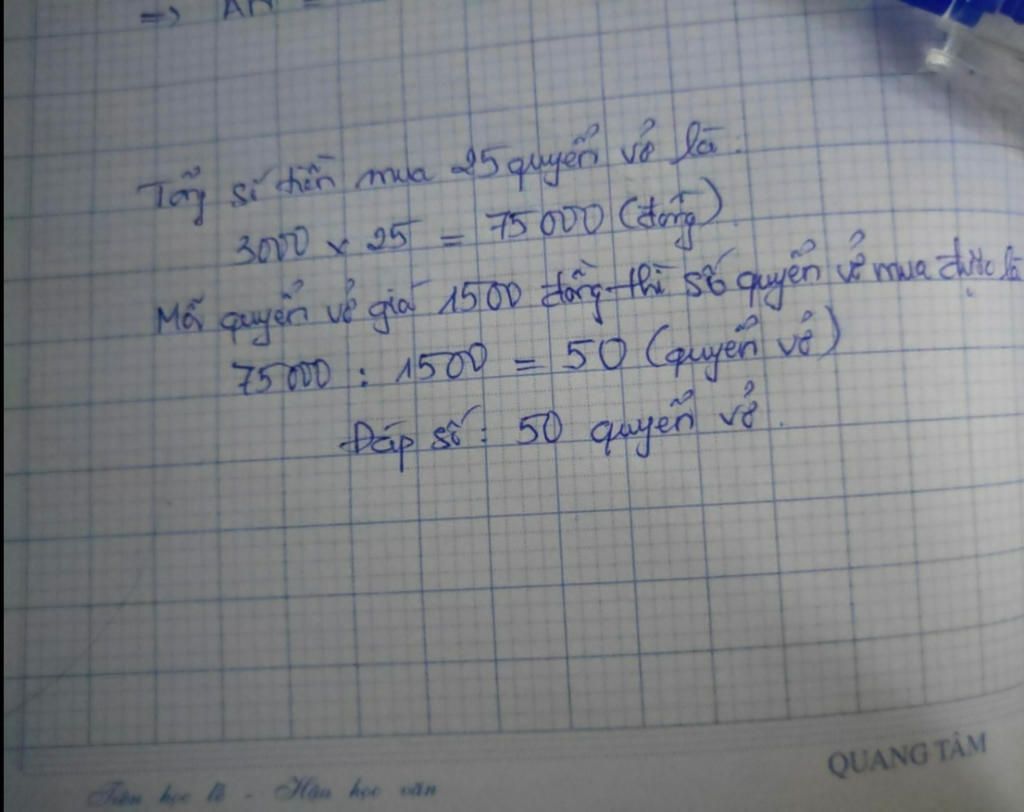 => AN =
Tổng số tiền mua 25 quyển vở là:
3000 x 25 = 75000 (đồng)
Mỗi quyển vở giá 1500 đồng thì số quyển vở mua được là
75000 : 1500 = 50 (quyển vở)
Đáp số: 50 quyển vở.
QUANG TÂM
Tiên học lễ - Hậu học văn